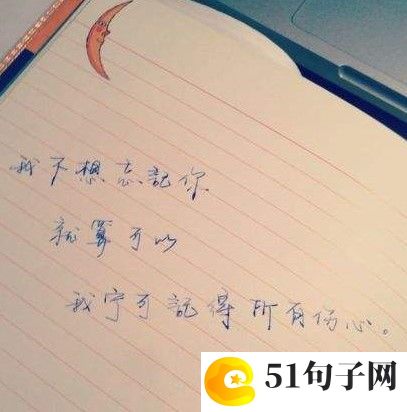 我不想忘記你
就算可以
我宁可記得所有伤心。
51句子网